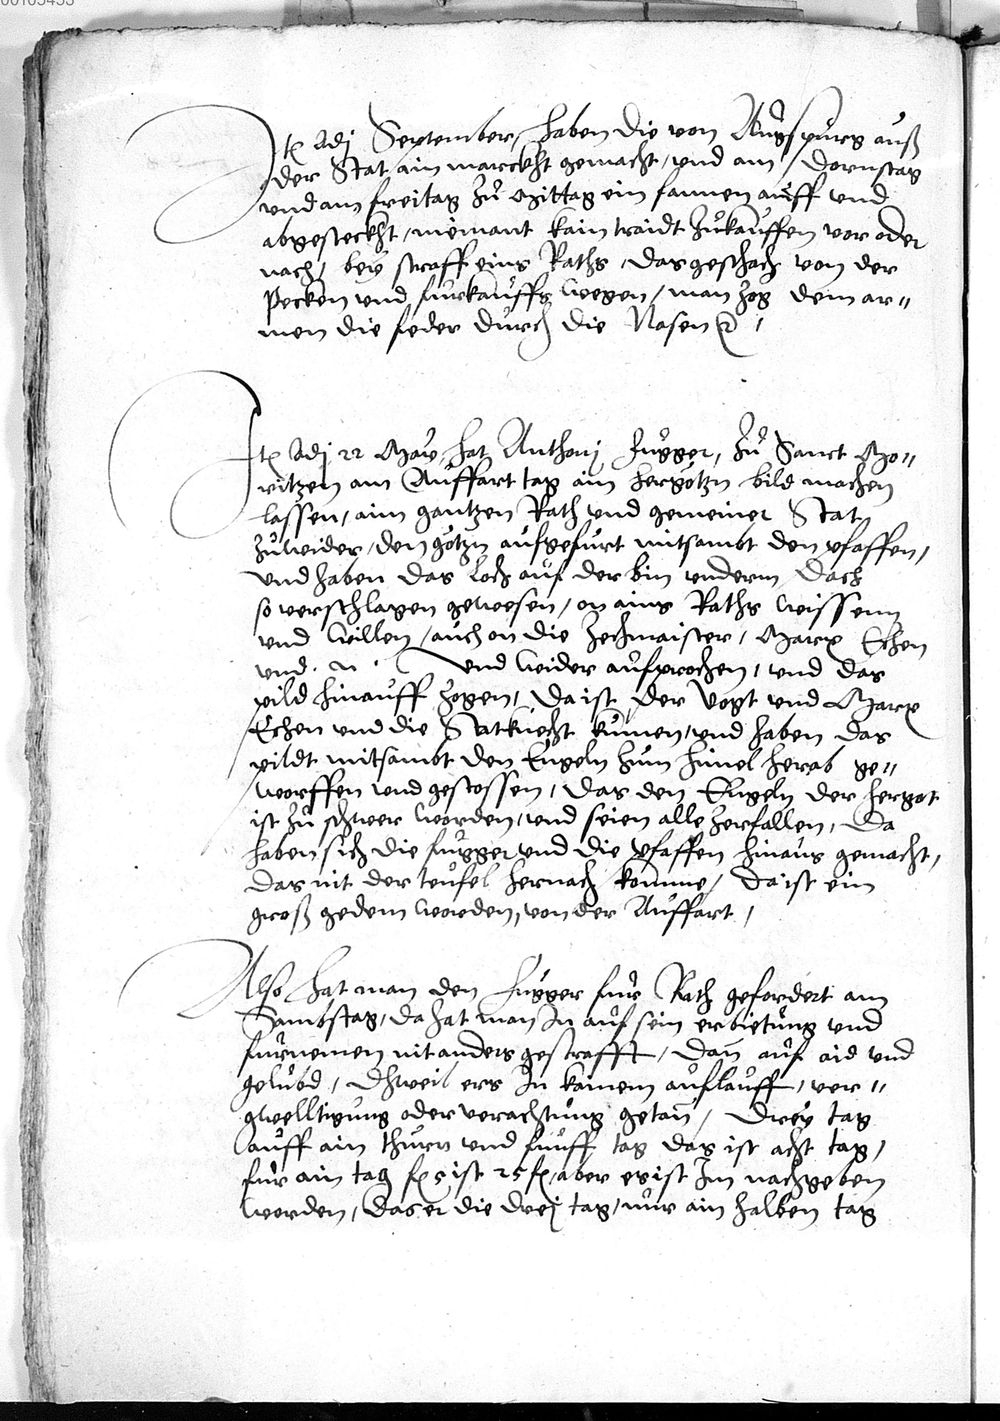 00105453
Itē Adj September, haben die von Augspurg auß
der Stat ain marckht gemacht, vnd am dornstag
vnd am freitag zů Mittag ein fannen auff vnd
abgesteckht, niemant kain traidt zukauffen vor oder
nach, bey straff eins Raths, das geschach von der
Pecken vnd furkauffs wegen, man zog dem ar=
men die feder durch die Nasen
Itē Adj 22 May hat Anthonj Fugger, zů Sanct Mo=
ritzen am Auffart tag ain hergotzn bild machen
lassen, aim gantzen Rath vnd gemeiner Stat
zuwider, den götzn aufgefurt mitsambt den pfaffen,
vnd haben das loch auf der bin vnderm dach
so verschlagen gewesen, on ains Raths wissenn
vnd willen, auch on die zechmaister, Marx Echen
vnd . N . vnd wider aufprochen, vnd das
pild hinauff zogen, da ist der Vogt vnd Marx
Echen vnd die Statknecht kumen, vnd haben das
pildt mitsambt den Engeln zum himel herab ge=
worffen vnd gestossen, das den Engeln der hergot
ist zů schwer worden, vnd seien alle zerfallen, Da
haben sich die fugger vnd die pfaffen hinaus gemacht,
das nit der teufel hernach komme, da ist ein
groß gedem worden, von der Auffart,
Also hat man den Fugger fur Rath gefordert am
Sambstag, da hat man In auf sein erbietung vnd
furnemen nit anders gestrafft, dan auf aid vnd
gelubd, dhweil ers In kainem auflauff, ver=
gwelltigung oder verachtung getan, drey tag
auff ain thurn vnd funff tag das ist acht tag,
fur ain tag fl 5 ist 25 fl, aber es ist Im nachgeben
worden, das er die drej tag, nur ain halben tag